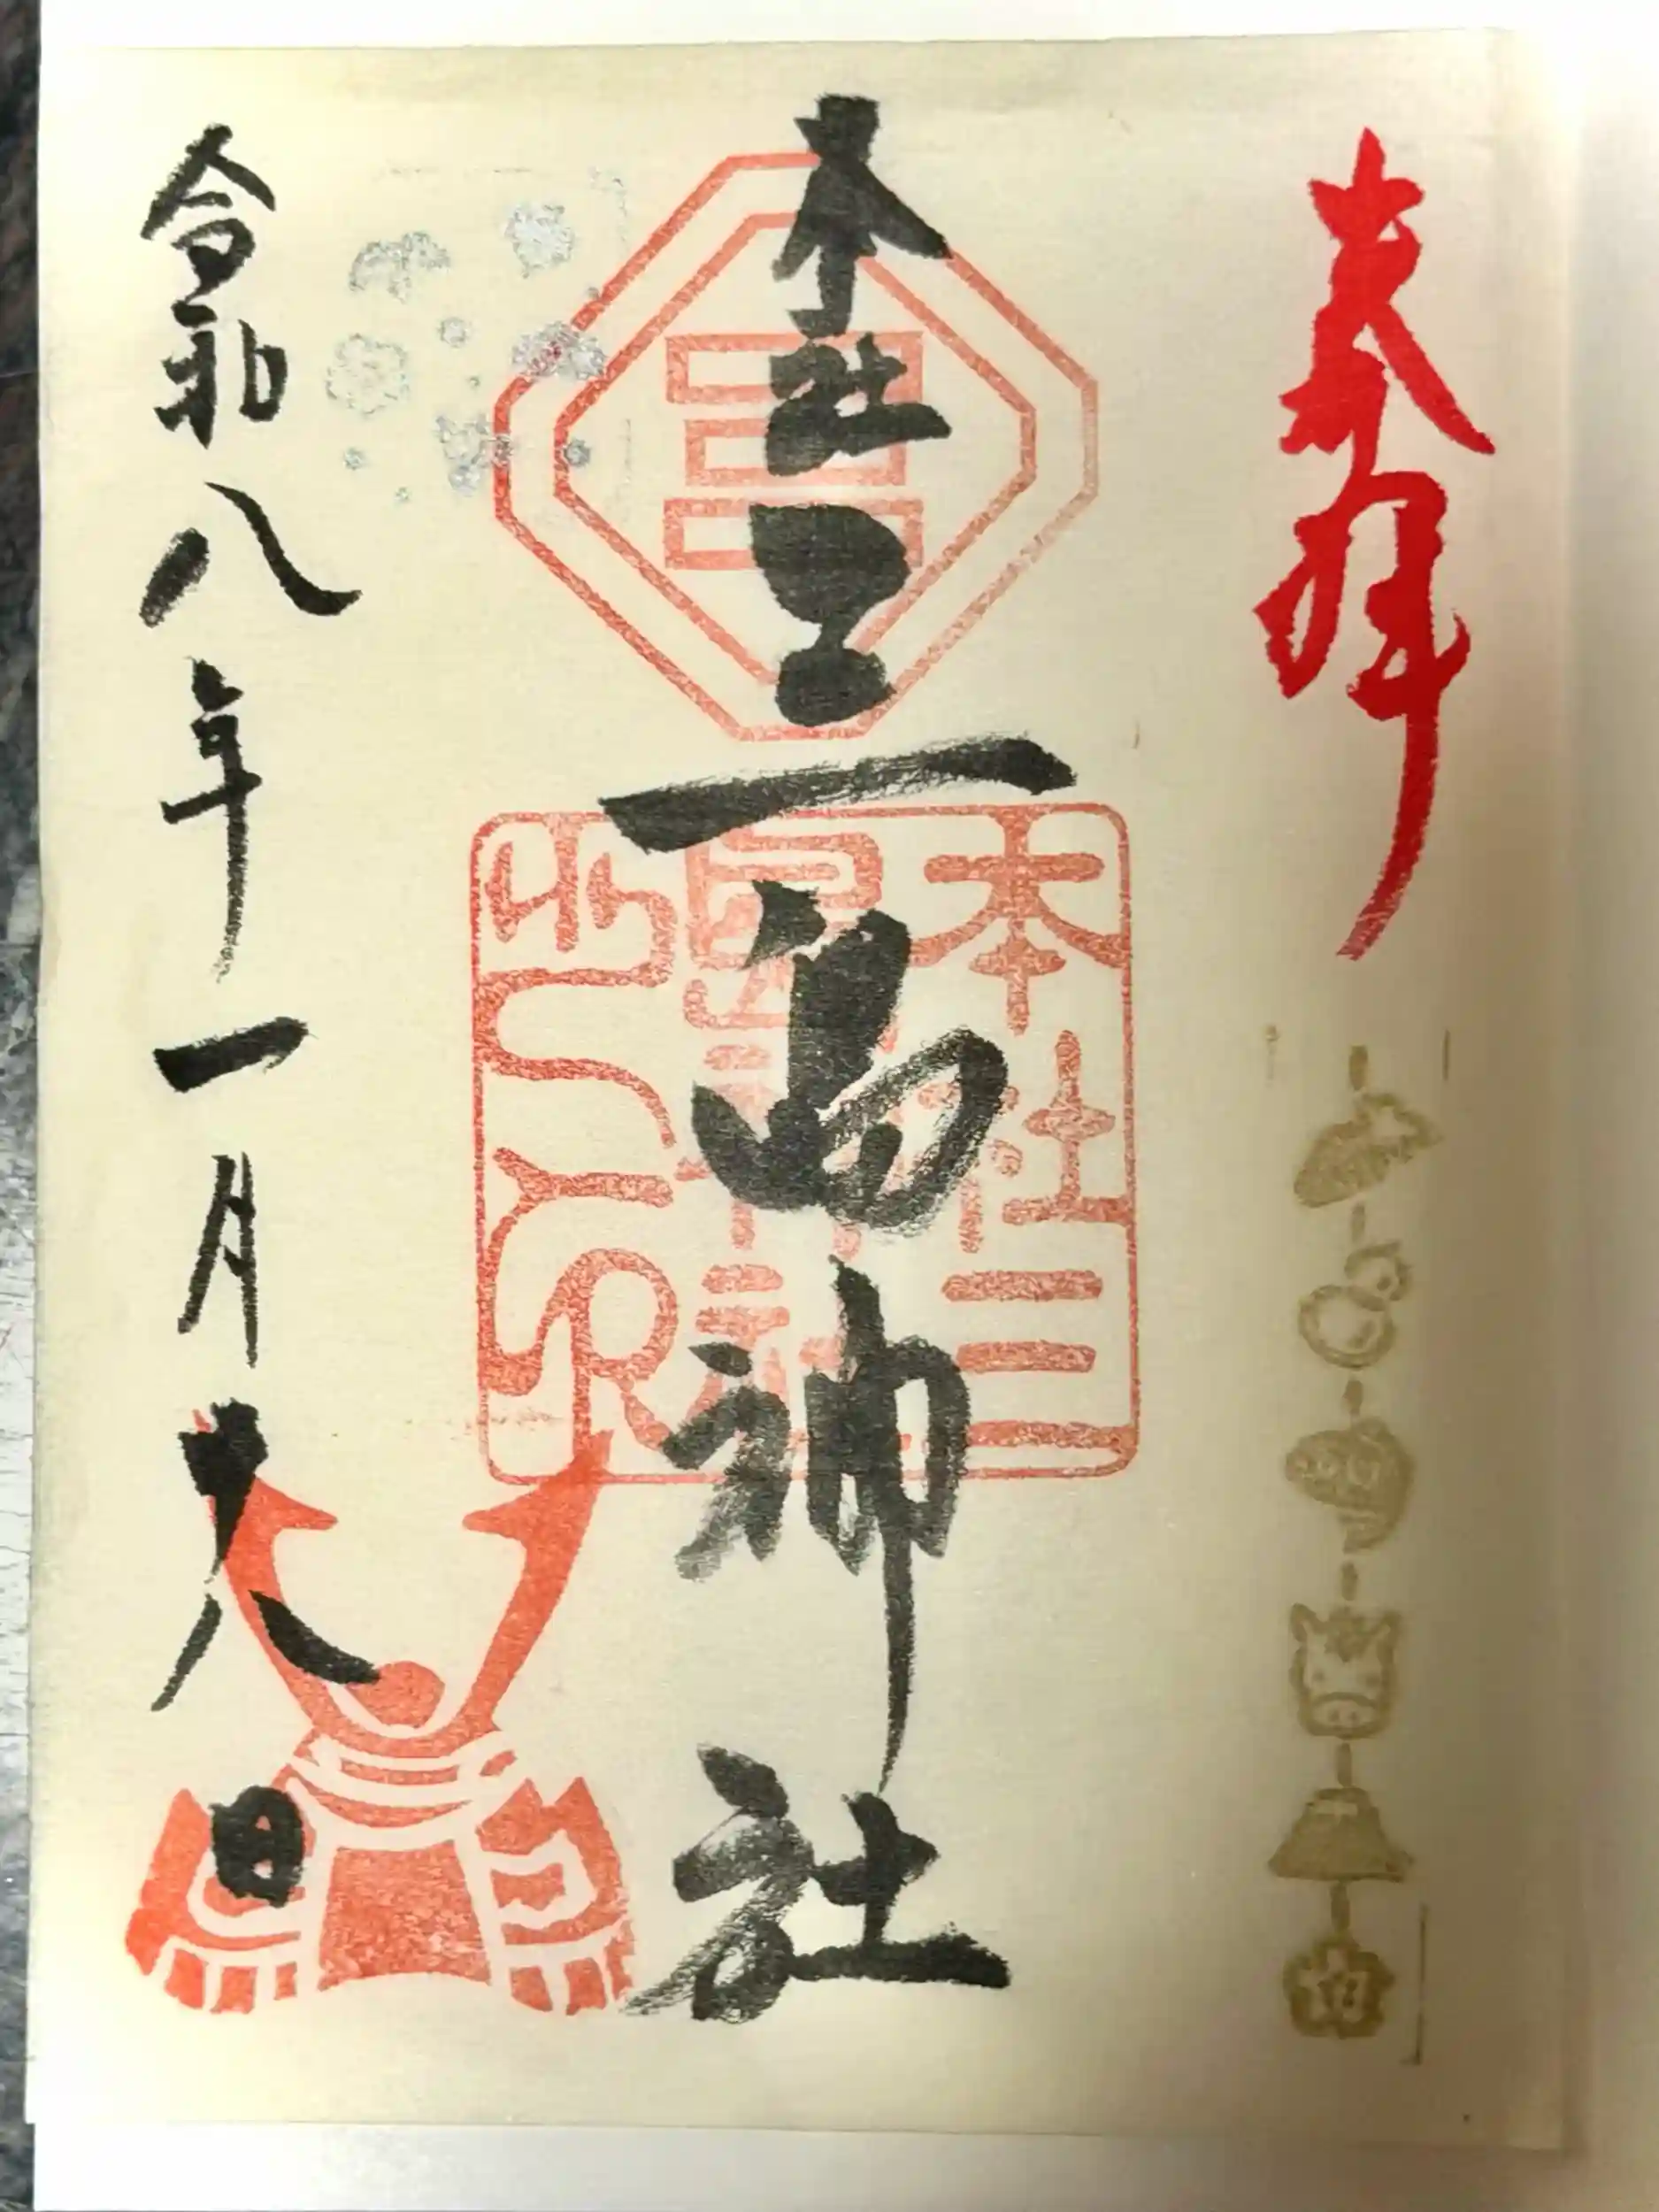 奉拝
本社三島神社
本社三
島神社
令和八年一月十八日